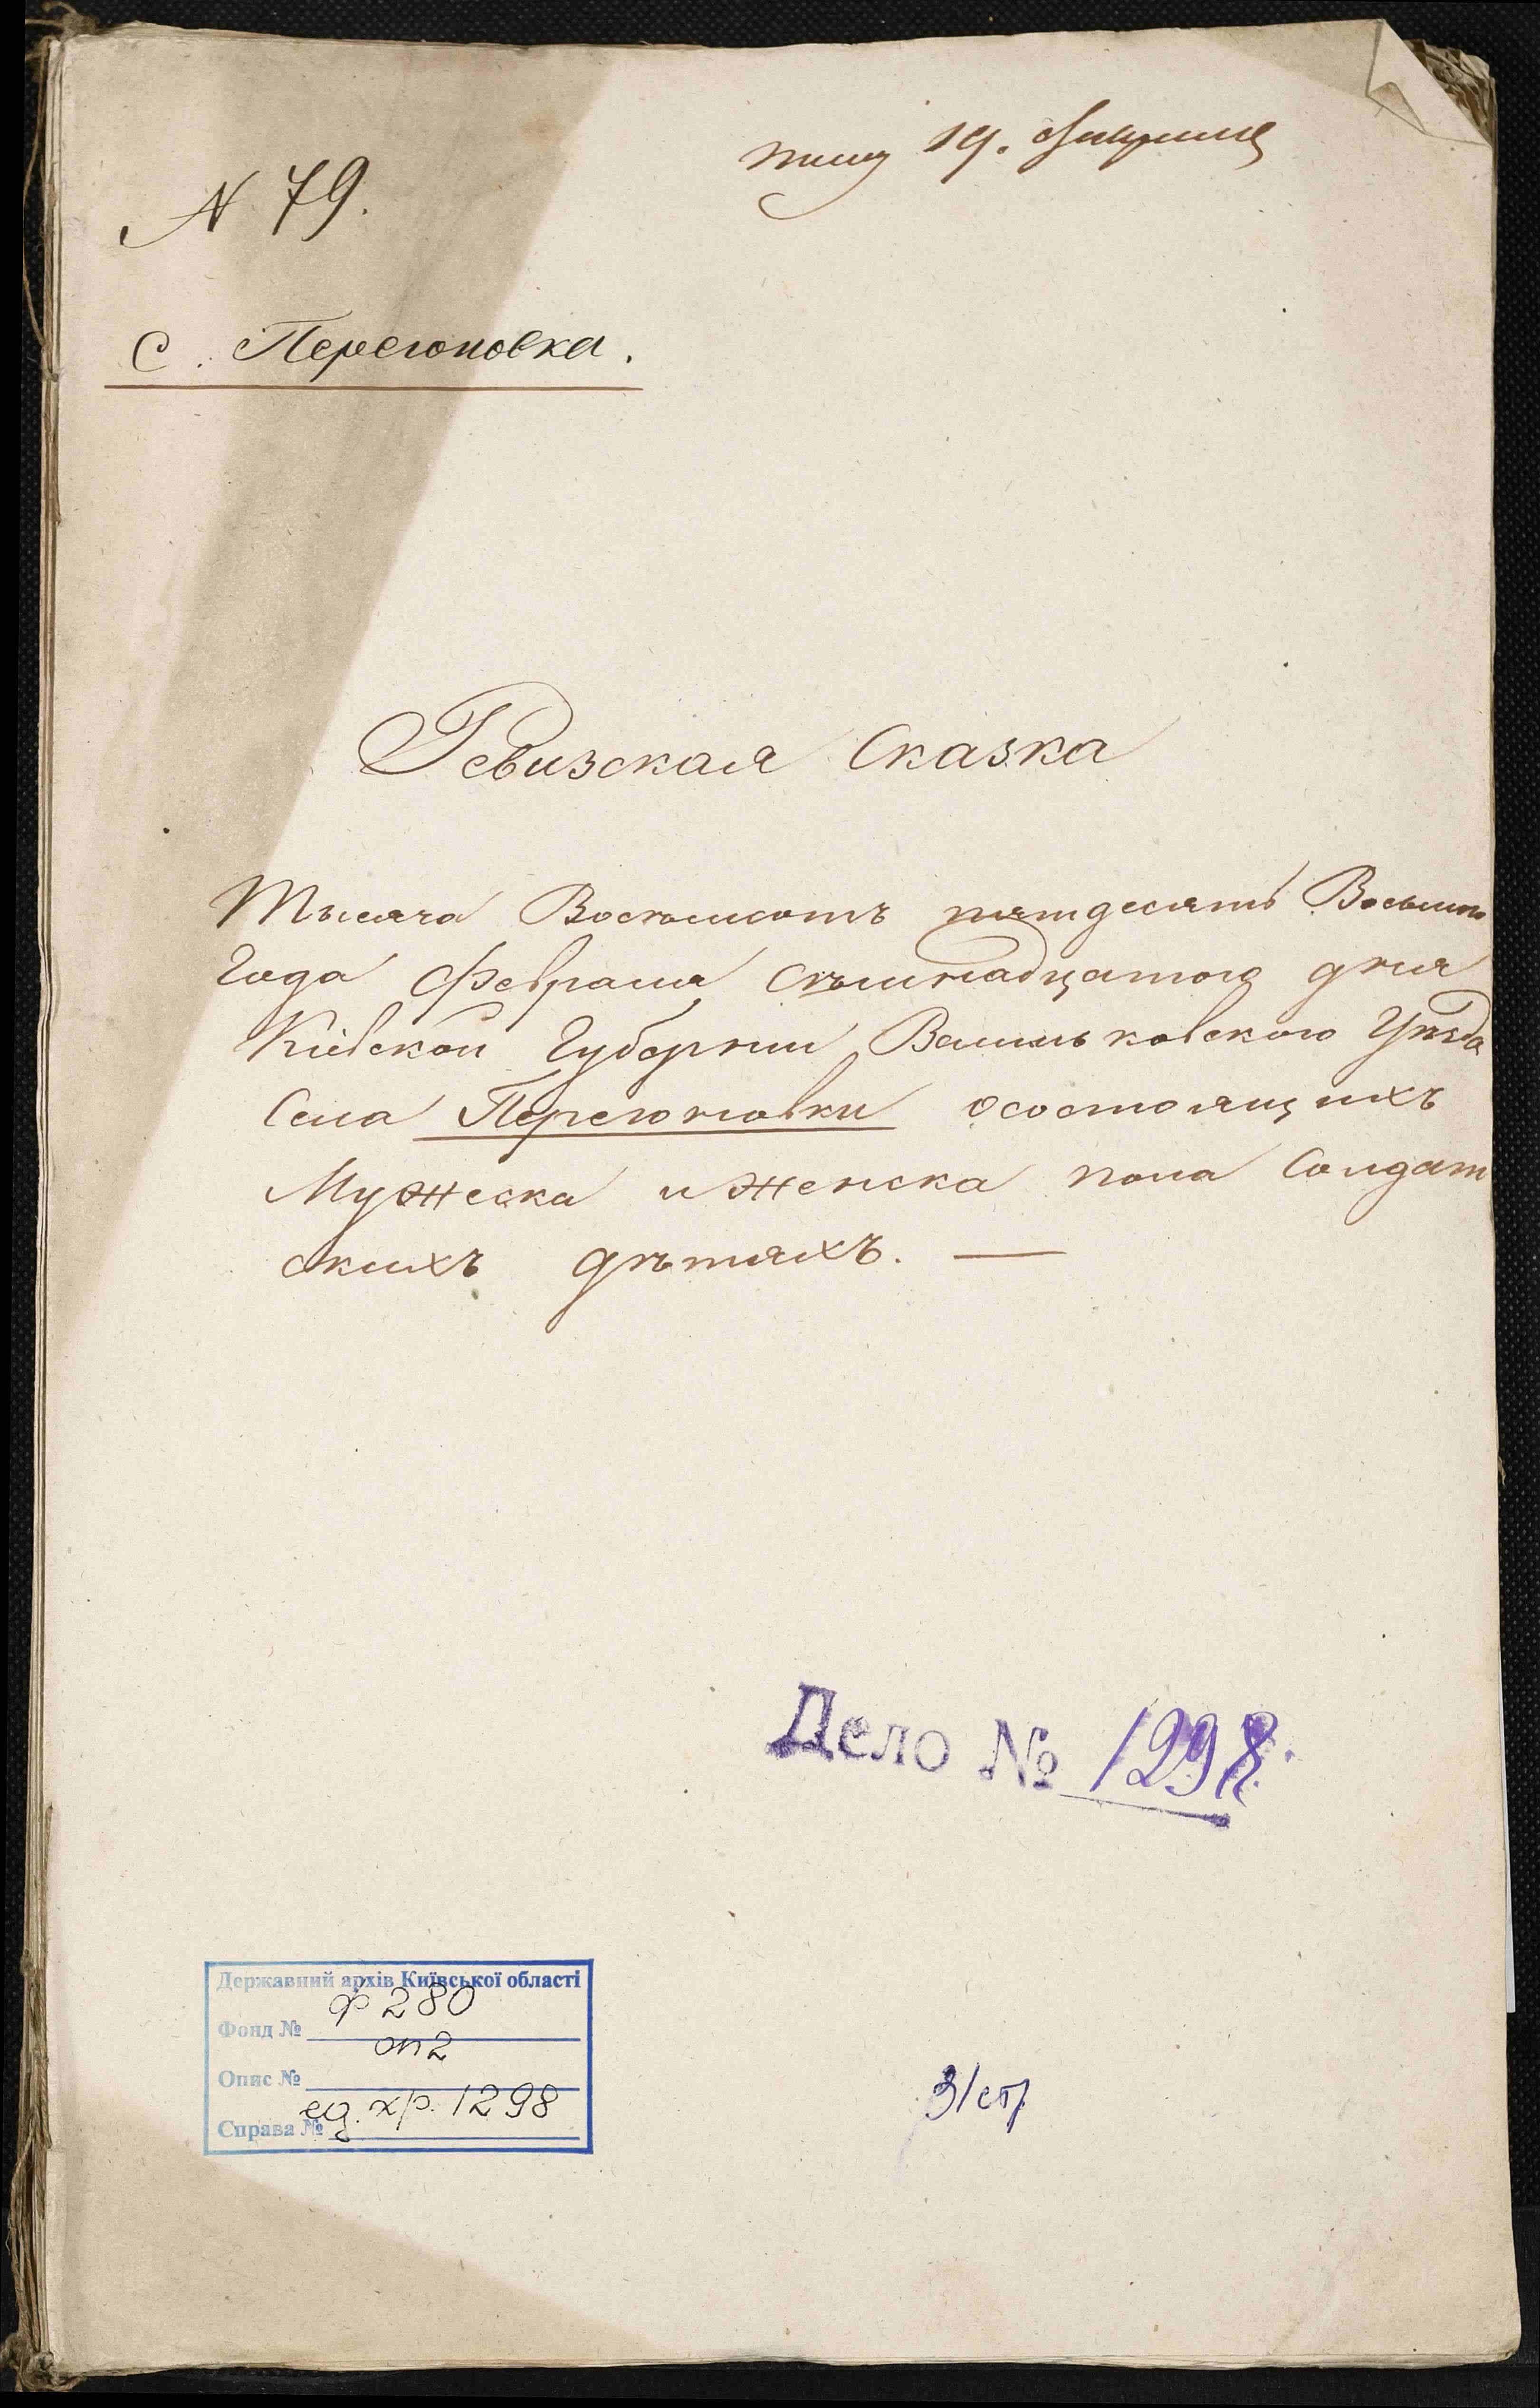 N 79.
19.
С. Перегоновка.
Ревизская Сказка
Тысяча Восемьсотъ пятдесятъ Восьмого
Года Февраля Семнадцатого дня
Кіевской Губерніи Васильковского Уезда
Села Перегоновки осостоящихъ
Мужеска и Женска пола Солдат
скихъ дѣтяхъ. —
Дело № 1298.
Державний архів Київської області
Фонд № ф 280
Опис № оп 2
Справа № ед. хр. 1298